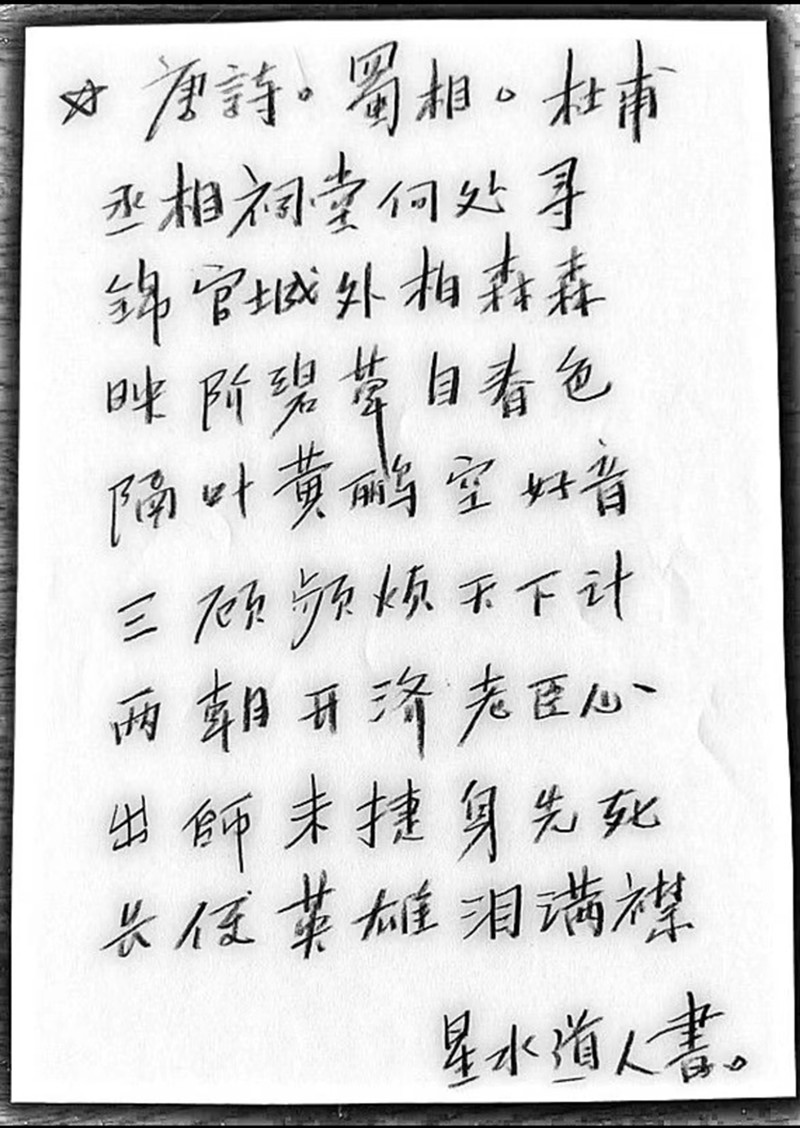 ☆ 唐詩。蜀相。杜甫
丞相祠堂何处寻
錦官城外柏森森
映阶碧草自春色
隔叶黄鹂空好音
三顾频烦天下计
两朝开济老臣心
出師未捷身先死
长使英雄泪满襟
星水道人書。